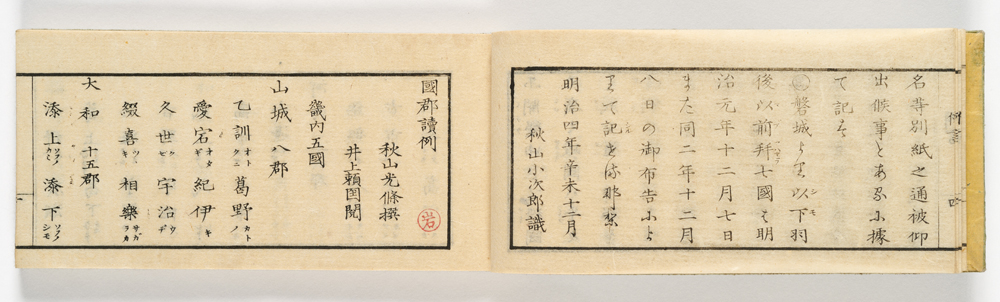 例言
四
名等別紙之通被仰
出候事とあるに據
て記す
磐城より以下羽
後以前拜七國は明
治元年十二月七日
また同二年十二月
八日の御布告によ
りて記せる那り
明治四年辛未十二月
秋山小次郎識
國郡讀例
秋山光條撰
井上頼囶閲
岩
畿内五國
山城八郡
乙訓オトクニ 葛野カトノ
愛宕オタギ 紀伊キ
久世クゼ 宇治ウヂ
綴喜ツヾキ 相樂サガラカ
大和 十五郡
添上ソフノカミ 添下ソフノシモ